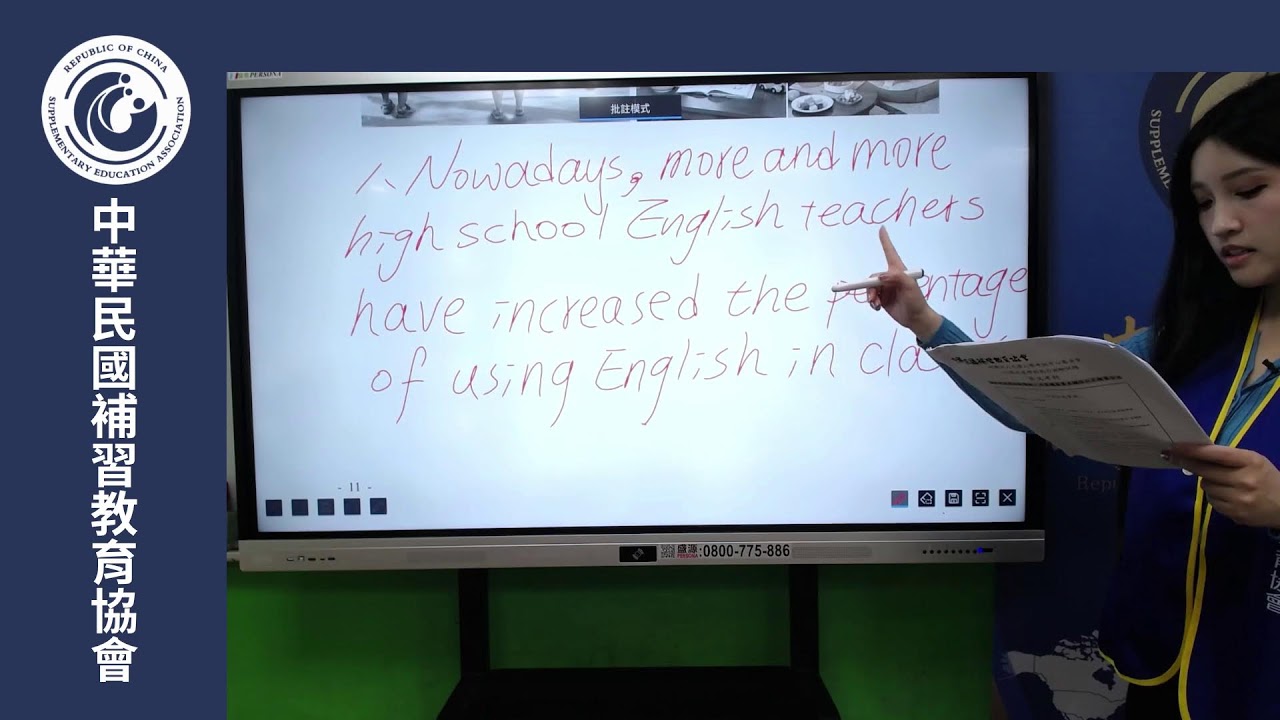 REPUBLIC OF CHINA
SUPPLEMENTARY EDUCATION ASSOCIATION
中華民國補習教育協會
PERSONA
批註模式
Nowadays, more and more
high school English teachers
have increased the
of using English in
- 11 -
盛源:0800-775-886
PERSONA
SUPPLEME
Rep